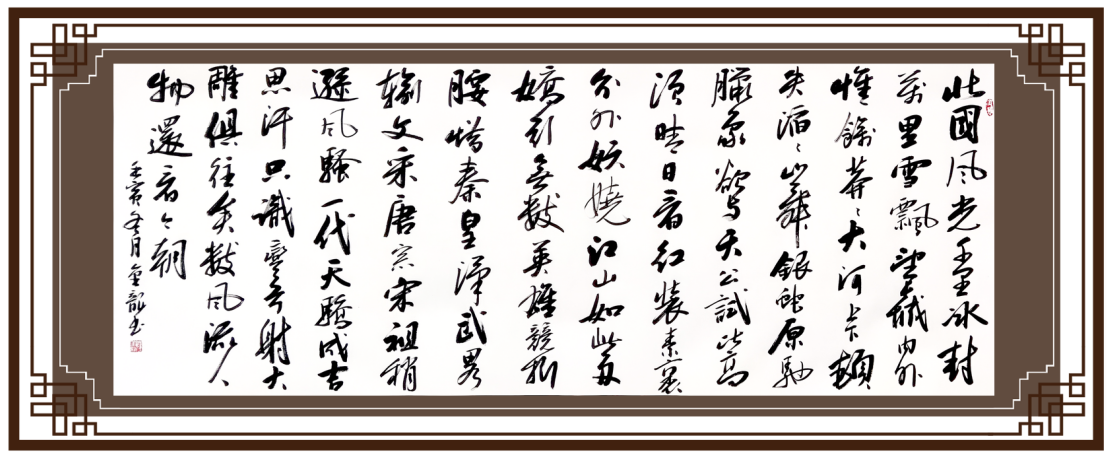 北國風光千里冰封
萬里雪飄望城内外
惟餘莽〻大河上下頓
失滔〻山舞銀蛇原馳
臘象欲与天公試比高
須晴日看紅裝素裹
分外妖嬈江山如此多
嬌引無數英雄競折
腰惜秦皇漢武略
輸文采唐宗宋祖稍
遜風騷一代天驕成吉
思汗只識彎弓射大
雕俱往矣數風流人
物還看今朝
壬寅冬月金龍書